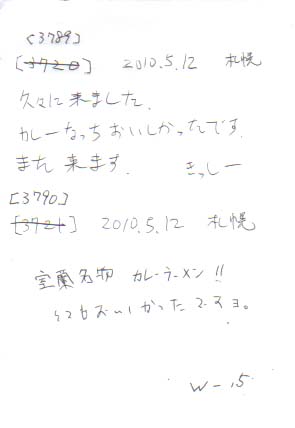 [3789]
[3720] 2010.5.12 札幌
久々に来ました.
カレーなっちおいしかったです.
また 来ます. きっしー
[3790]
[3721] 2010.5.12 札幌
室蘭名物 カレーラーメン!!
とてもおいしかったでスヨ。
W-.5